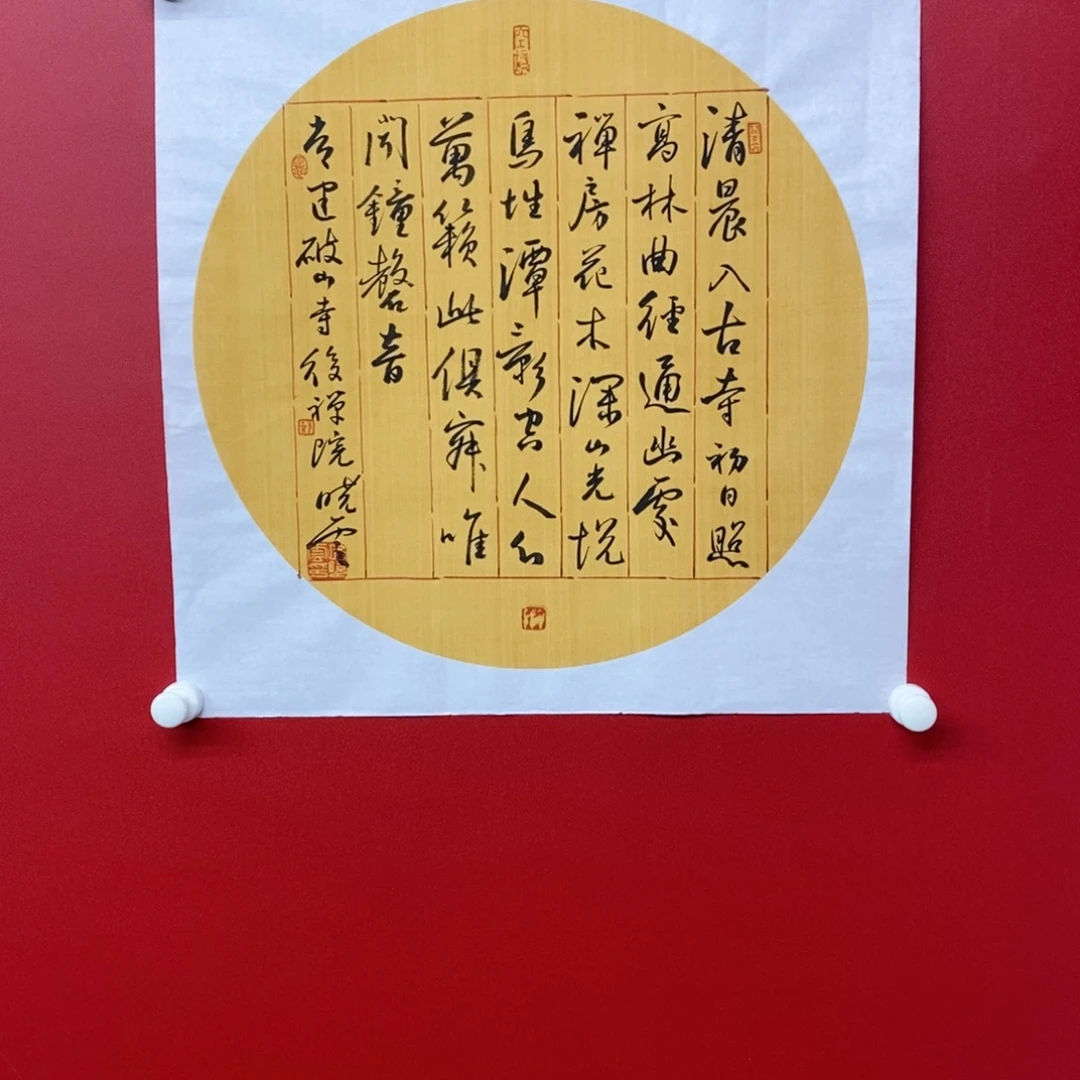 清晨入古寺初日照
高林曲徑通幽處
禪房花木深山光悅
鳥性潭影空人心
萬籟此俱寂唯
聞鐘磬音
常建破山寺後禪院曉